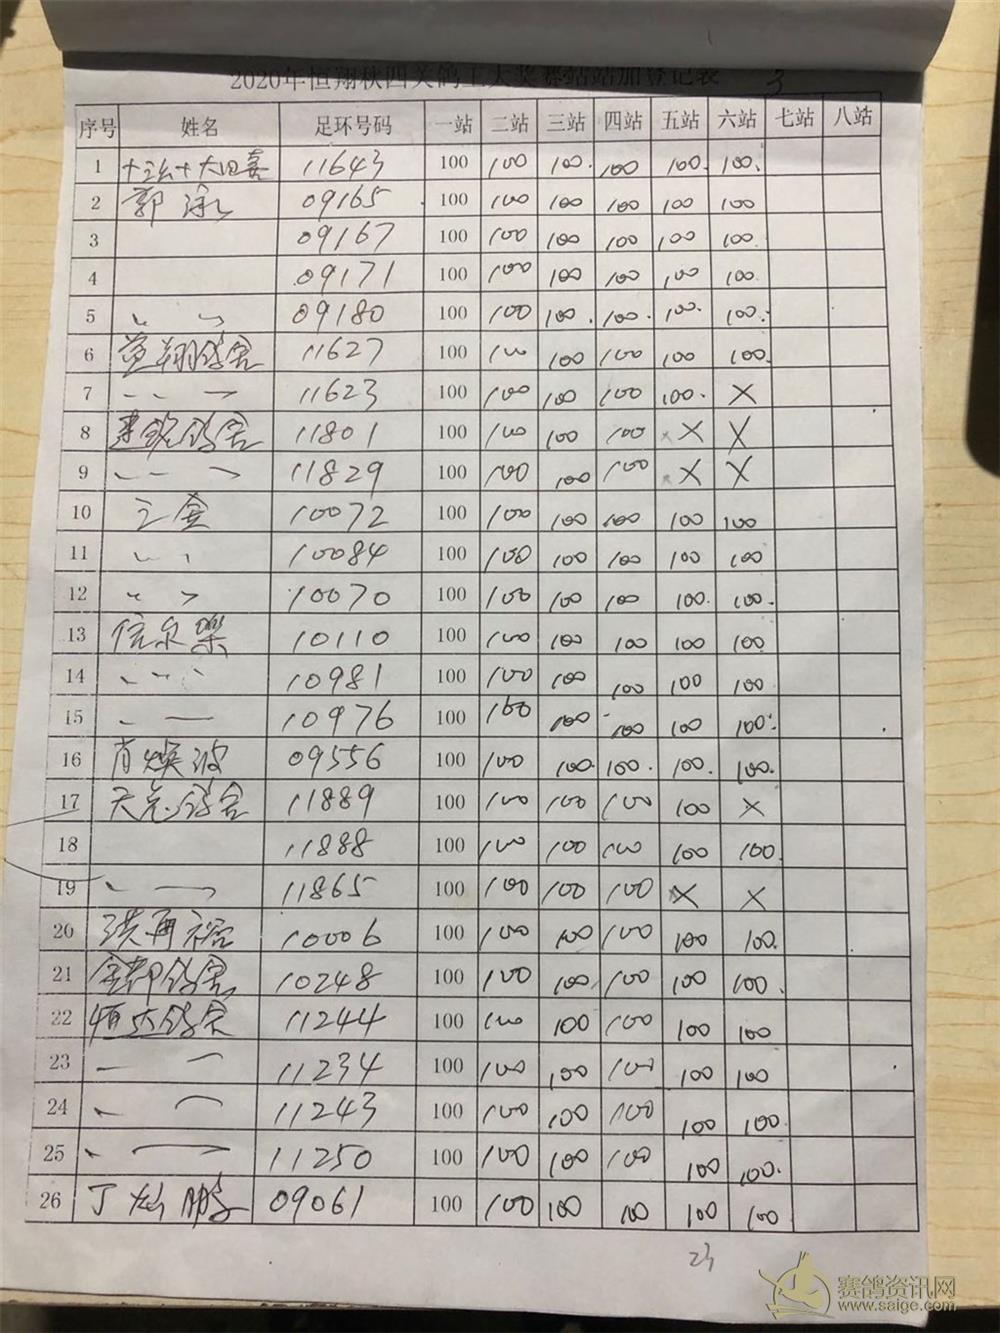 2020年恒翔秋四关鸽王大奖赛站站加登记表 3
序号 姓名 足环号码 一站 二站 三站 四站 五站 六站 七站 八站
1 大四喜 11643 100 100 100. 100 100. 100.
2 郭 泳 09165 100 100 100 100 100 100
3 09167 100 100 100 100 100 100
4 09171 100 100 100 100 100 100.
5 09180 100 100 100. 100. 100. 100.
6 翔鸽舍 11627 100 100 100 100 100 100.
7 11623 100 100 100 100 100. ×
8 建 鸽舍 11801 100 100 100 100 × ×
9 11829 100 100 100 100 × ×
10 王金 10072 100 100 100 100 100 100
11 10084 100 100 100 100 100 100
12 10070 100 100 100 100 100. 100.
13 信永乐 10110 100 100 100 100 100 100
14 10981 100 100 100 100 100 100
15 10976 100 100 100 100 100 100.
16 肖焕波 09556 100 100 100. 100. 100. 100.
17 天 鸽舍 11889 100 100 100 100 100 ×
18 11888 100 100 100 100 100 100.
19 11865 100 100 100 100 × ×
20 洪再 10006 100 100 100 100 100 100.
21 金都鸽舍 10248 100 100 100 100 100 100.
22 恒达鸽舍 11244 100 100 100 100 100 100
23 11234 100 100 100 100 100 100
24 11243 100 100 100 100 100 100.
25 11250 100 100 100 100 100 100.
26 丁 鹏 09061 100 100 100 100 100 100
23
赛鸽资讯网
www.saige.com